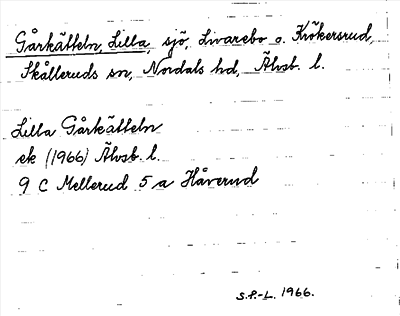 Gårkätteln, Lilla, sjö, Livarebo o. Krökersrud,
Skålleruds sn, Nordals hd, Älvsb. l.
Lilla Gårkätteln
ek (1966) Älvsb. l.
9 C Mellerud 5 a Håverud
S.P.-L. 1966.